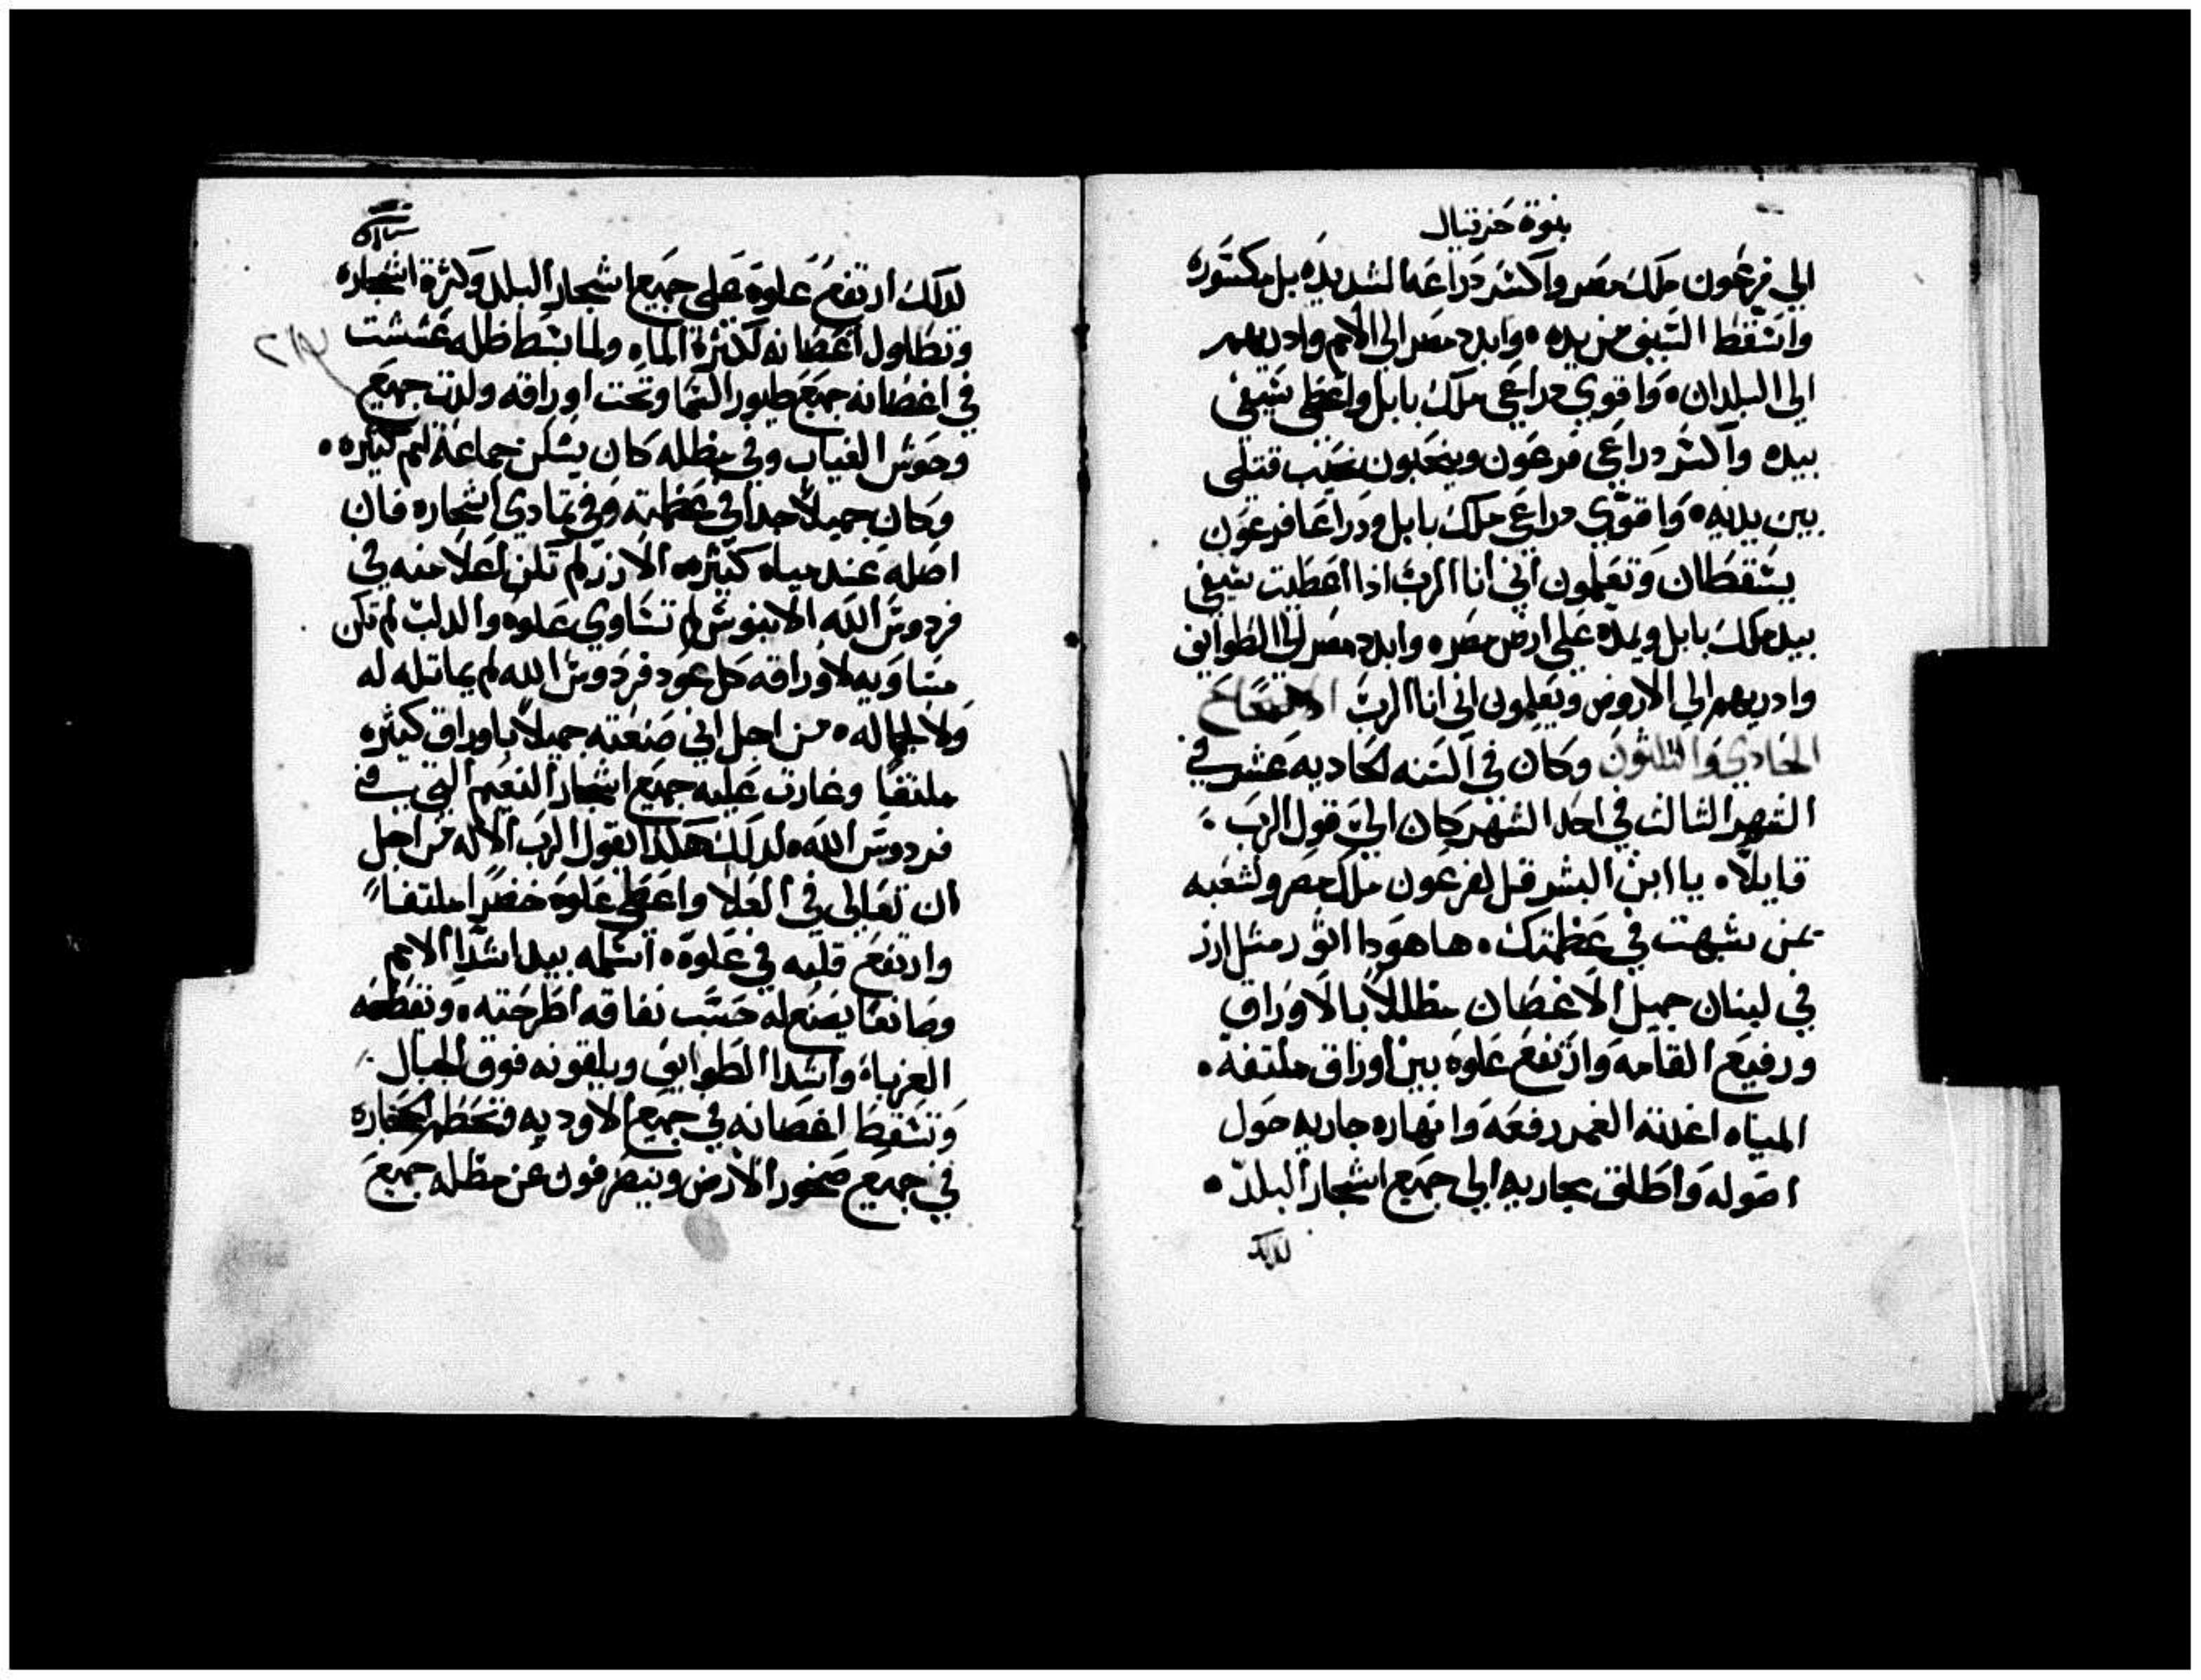 بنوة حزقيال
الي فرعون ملك مصر واكسر دراعه الشديده بل مكسوره
واسقط السيف من يده • وابدد مصر الي الامم وادريهم
الي البلدان • واقوي دراعي ملك بابل واعطي سيفي
بيده واكسر دراعي فرعون وينحبون نحيب قتلي
بين يديه • واقوي دراعي ملك بابل ودراعا فرعون
يسقطان وتعلمون اني انا الرب اذا اعطيت سيفي
بيد ملك بابل ويمده علي ارض مصر • وابدد مصر الي الطوايف
وادريهم الي الاروض ويعلمون اني انا الرب الاصحاح
الحادي والثلثون وكان في السنه الحاديه عشر في
الشهر الثالث في احد الشهر كان الي قول الرب
قايلا • يا ابن البشر قل لفرعون ملك مصر ولشعبه
بمن شبهت في عظمتك • ها هودا اثور مثل ارز
في لبنان جميل الاغصان مظللا بالاوراق
ورفيع القامه وارتفع علوه بين اوراق ملتفه •
المياه اغدته الغمر رفعه وانهاره جاريه حول
اصوله واطلق مجاريه الي جميع اشجار البلد •
لدلك
لدلك ارتفع علوه علي جميع اشجار البلد وكثرة اشجاره
وتطاول اغصانه لكثرة الماء ولما بسط ظله عششت
في اغصانه جميع طيور السما وتحت اوراقه ولدت جميع
وحوش الغياب وفي مظله كان يسكن جماعة امم كثيره •
وكان جميلا جدا في عظمته وفي تمادي اشجاره فان
اصله عند مياه كثيره الارز لم تكن اعلا منه في
فردوس الله الابنوس لم تساوي علوه والدلب لم تكن
مساويه لاوراقه كل عود فردوس الله لم يماتله له
ولا لجماله • من اجل اني صنعته جميلا باوراق كثيره
ملتفا وغارت عليه جميع اشجار النعيم التي في
فردوس الله • لدلك هكدا يقول الرب الاله من اجل
ان تعالي في العلا واعطي علوه خضرا ملتفا
وارتفع قلبه في علوه • اسلمه بيد اشد الامم
وصانعا يصنع له حسب نفاقه اطرحته • وتقطعه
الغرباء واشدا الطوايف ويلقونه فوق الجبال
وتسقط اغصانه في جميع الاوديه فتحطم اشجاره
في جميع صخور الارض وينصرفون عن مظله جميع